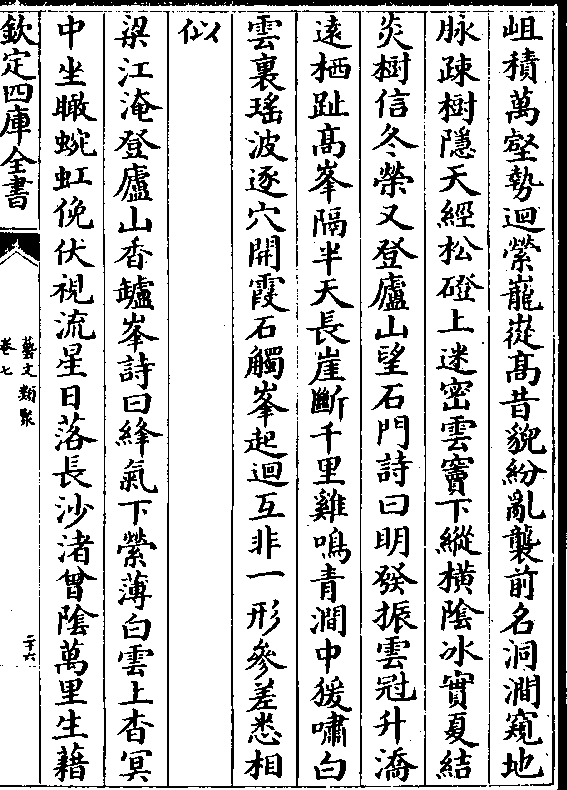 岨積萬壑勢迴縈巃嵸髙昔貌紛亂襲前名洞澗窺地
脉疎樹隱天經松磴上迷密雲竇下縱横隂氷實夏結
炎樹信冬榮又登廬山望石門詩曰明發振雲冠升㵎
逺栖趾髙峯隔半天長崖斷千里雞鳴青澗中猨嘯白
雲裏瑤波逐穴開霞石觸峯起迴互非一形參差悉相
似
梁江淹登廬山香爐峯詩曰絳氣下縈薄白雲上杳冥
中坐瞰蜿虹俛伏視流星日落長沙渚曾隂萬里生藉
欽定四庫全書
藝文類聚
卷七
二十六